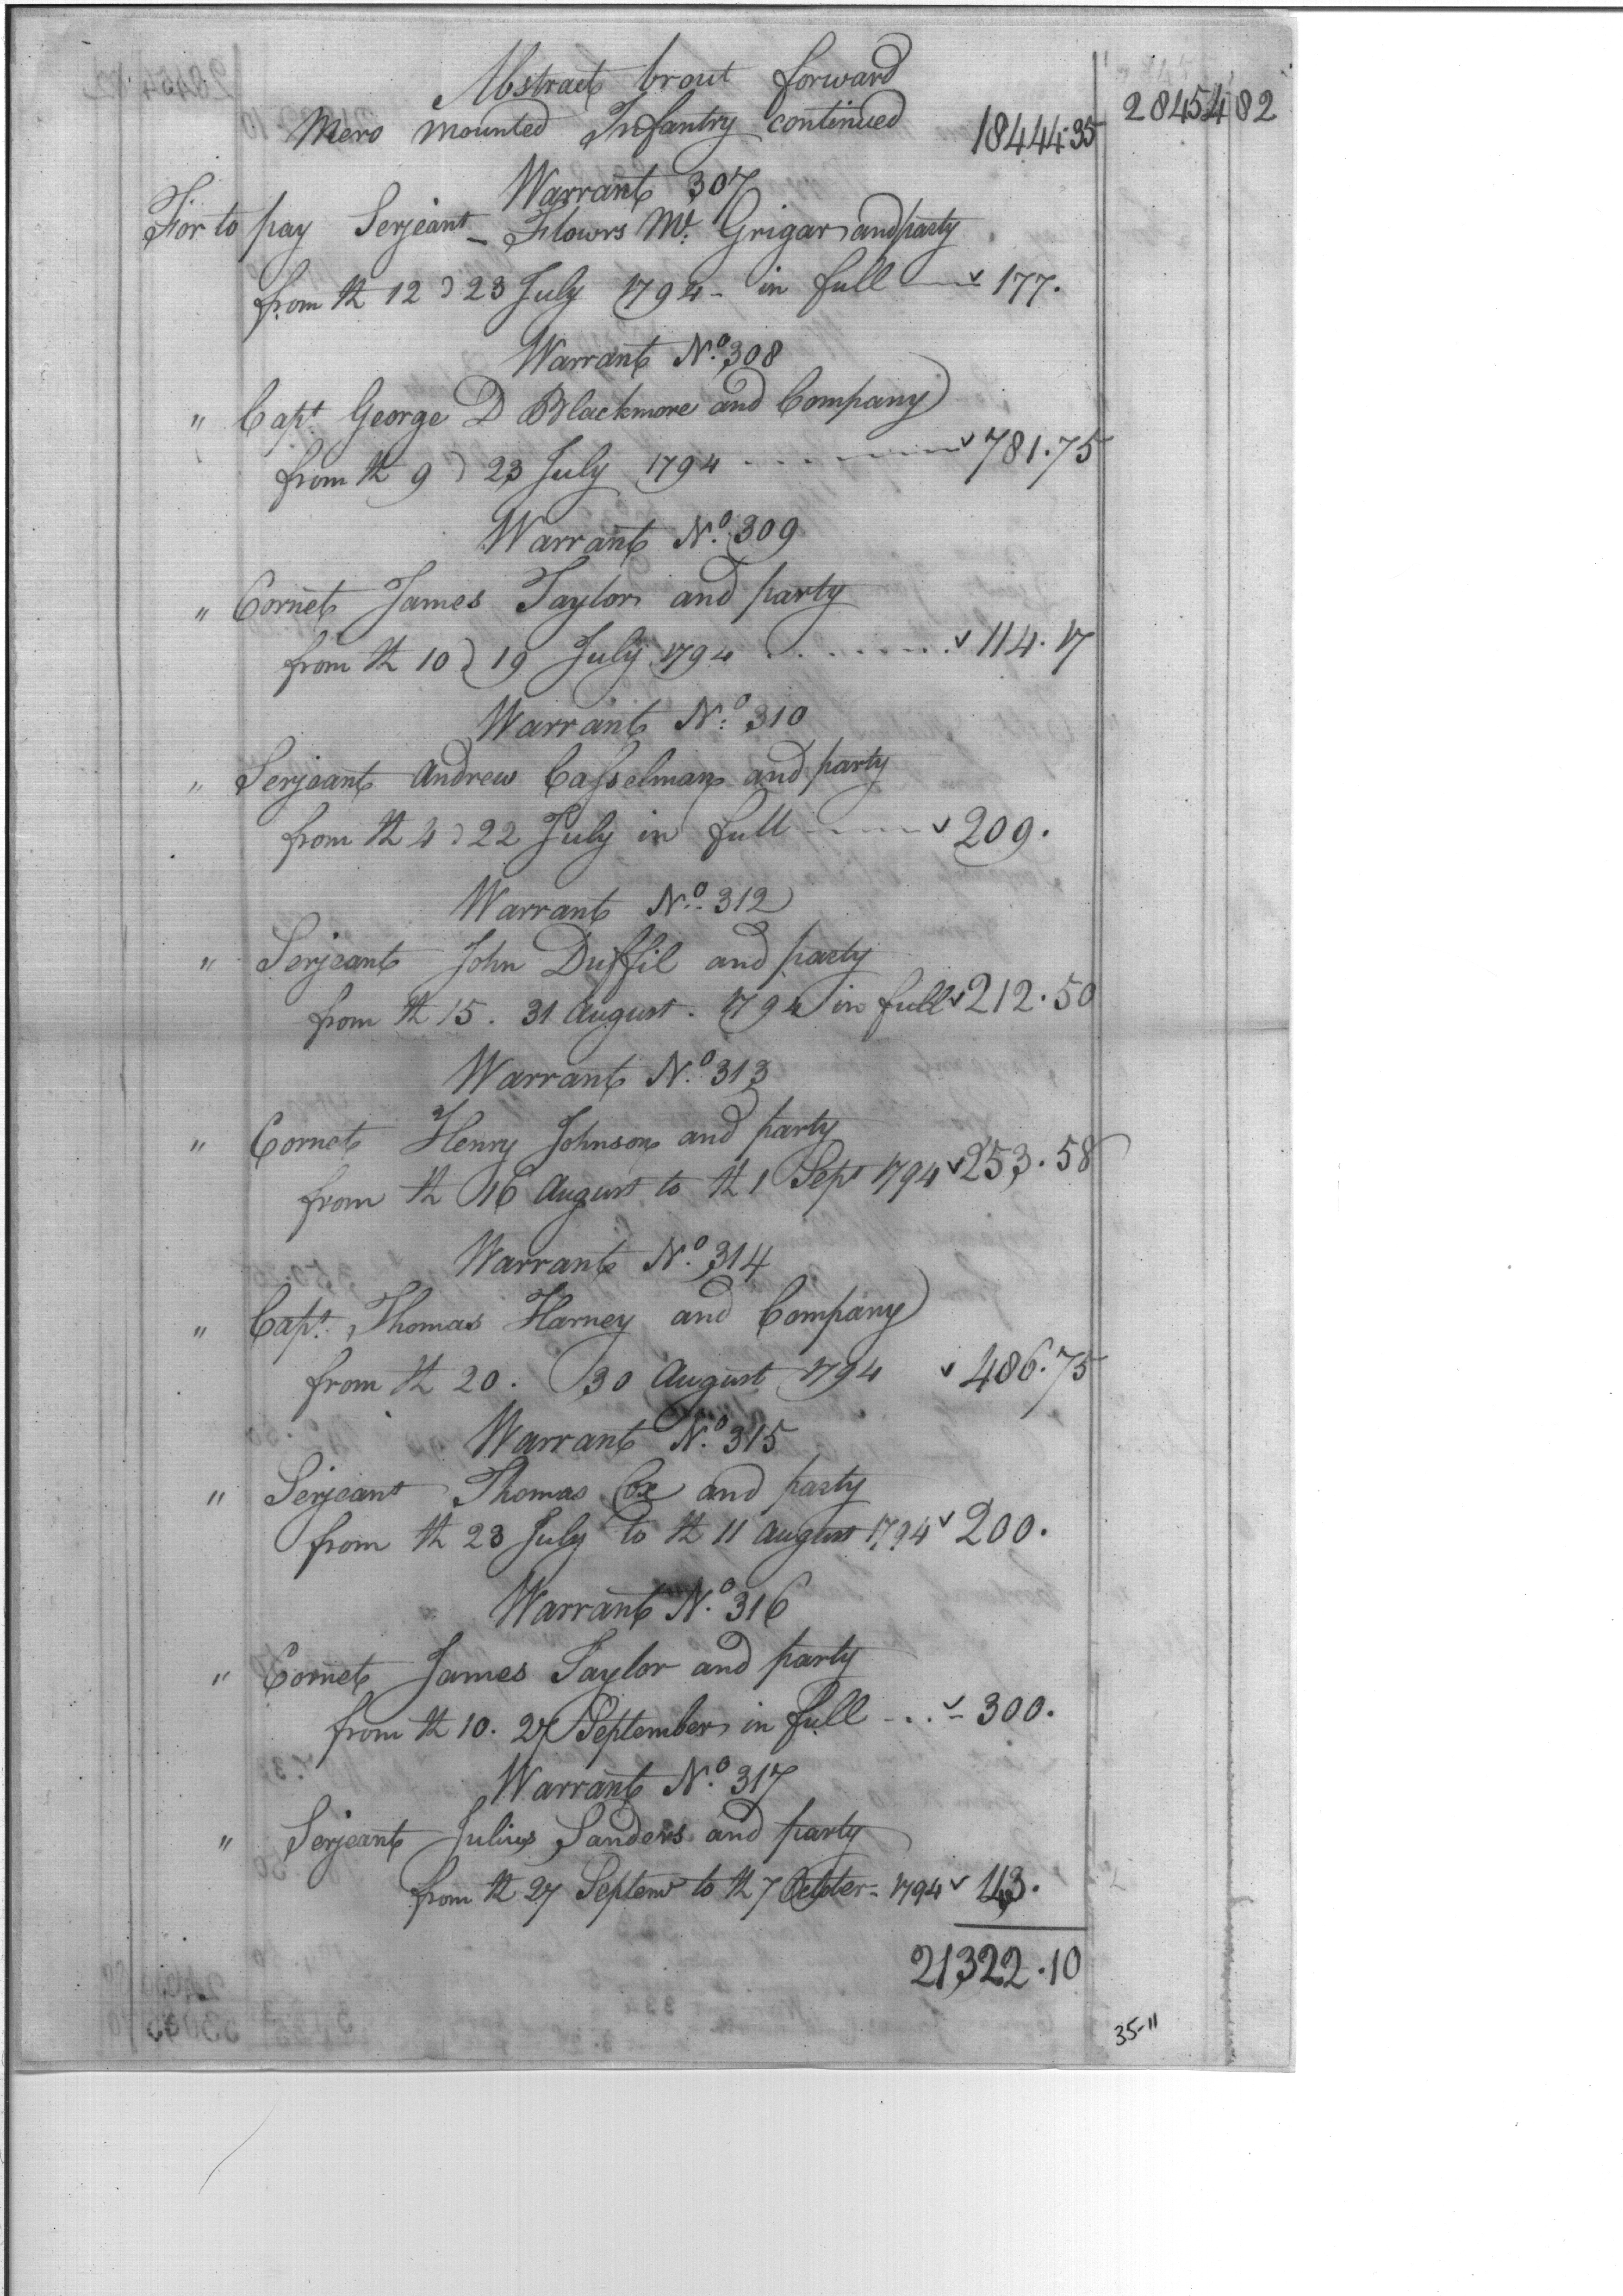 Abstract brout forward
Mero mounted Infantry continued 18444.35 28454 82
Warrant 307
For to pay Serjeant Flowrs Mc. Grigar and party
from th 12 23 July 1794 - in full 177.
Warrant No. 308
" Capt. George D Blackmore and Company
from th 9 23 July 1794 781.75
Warrant No. 309
" Cornet James Taylor and party
from th 10 19 July 1794 114.17
Warrant No. 310
" Serjeant Andrew Casselman and party
from th 4 22 July in full 209.
Warrant No. 312
" Serjeant John Duffil and party
from th 15. 31 August. 1794 in full 212.50
Warrant No. 313
" Cornet Henry Johnson and party
from th 16 August to th 1 Sept 1794 253.58
Warrant No. 314
" Capt. Thomas Harney and Company
from th 20. 30 August 1794 486.75
Warrant No. 315
" Serjeant Thomas Cox and party
from th 23 July to th 11 August 1794 200.
Warrant No. 316
" Cornet James Taylor and party
from th 10. 27 September in full 300.
Warrant No. 317
" Serjeant Julius Sanders and party
from th 27 Septemr to th 7 October - 1794 143.
21322.10
35-11